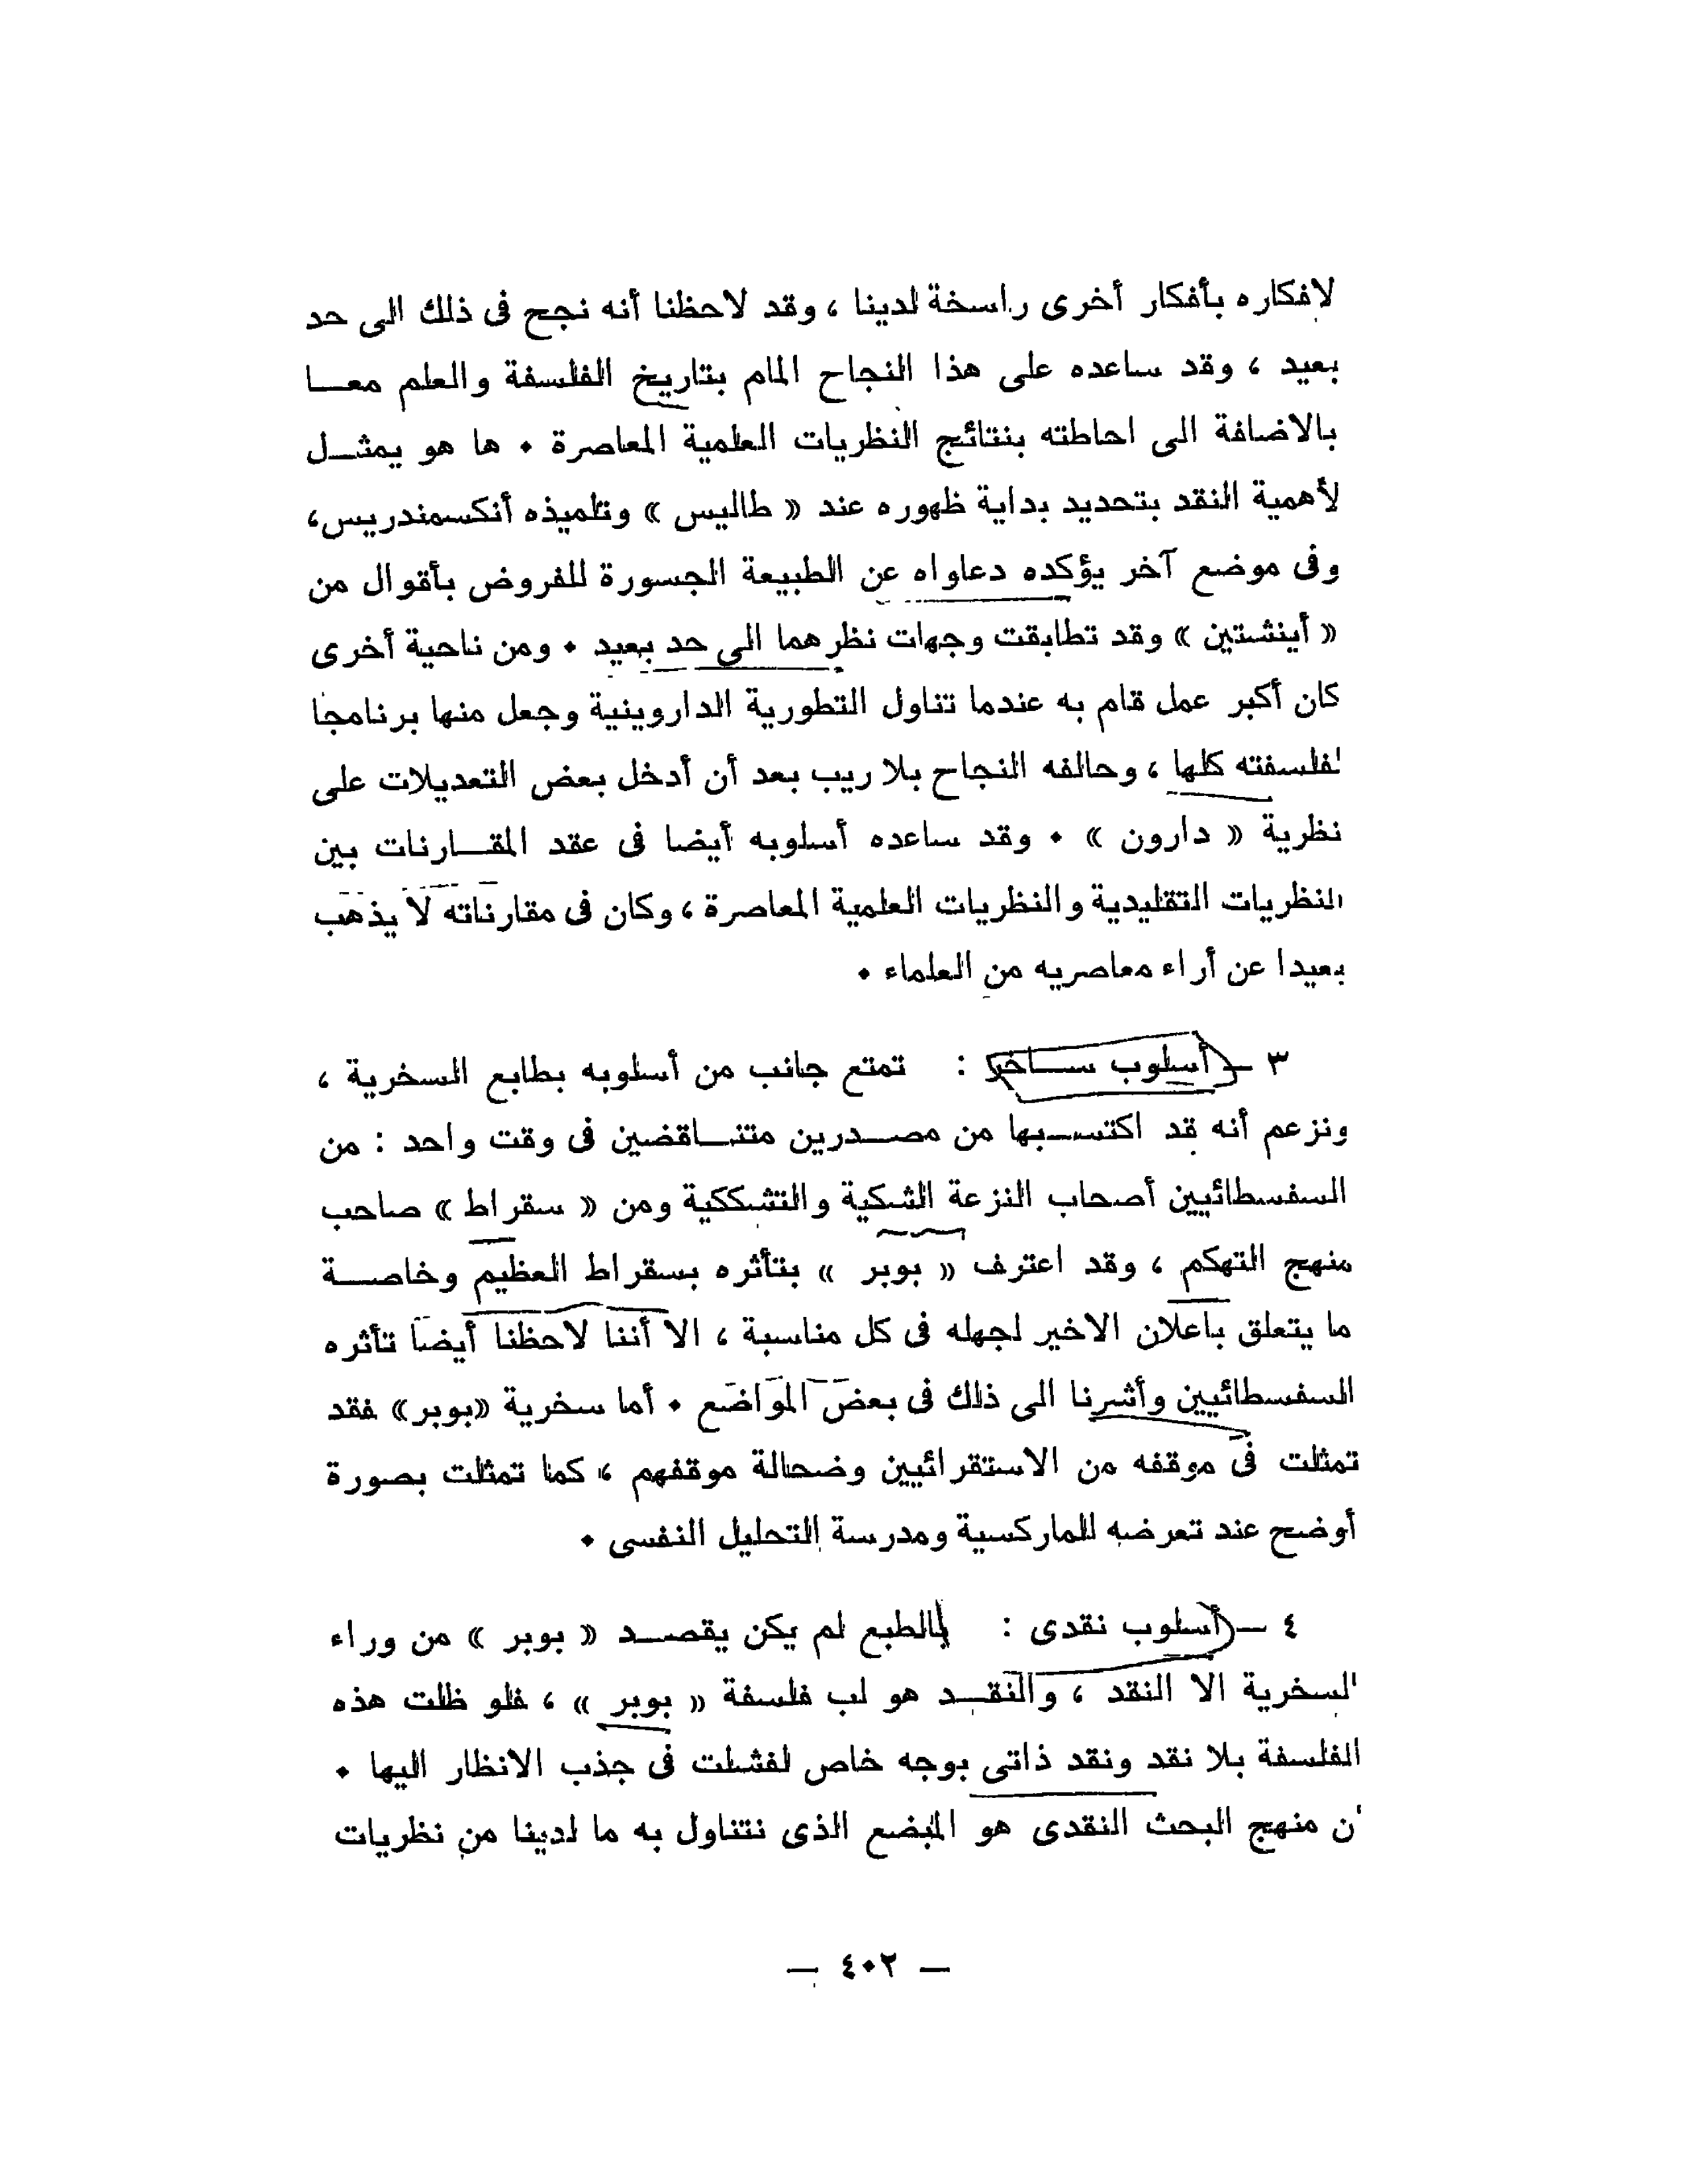 لافكاره بأفكار أخرى راسخة لدينا ، وقد لاحظنا أنه نجح فى ذلك الى حد
بعيد ، وقد ساعده على هذا النجاح المام بتاريخ الفلسفة والعلم معــا
بالاضافة الى احاطته بنتائج النظريات العلمية المعاصرة ٠ ها هو يمثــل
لأهمية النقد بتحديد بداية ظهوره عند « طاليس » وتلميذه أنكسمندريس،
وفى موضع آخر يؤكده دعاواه عن الطبيعة الجسورة للفروض بأقوال من
« أينشتين » وقد تطابقت وجهات نظرهما الى حد بعيد ٠ ومن ناحية أخرى
كان أكبر عمل قام به عندما تناول التطورية الداروينية وجعل منها برنامجا
لفلسفته كلها ، وحالفه النجاح بلا ريب بعد أن أدخل بعض التعديلات على
نظرية « دارون » ٠ وقد ساعده أسلوبه أيضا فى عقد المقــارنات بين
النظريات التقليدية والنظريات العلمية المعاصرة ، وكان فى مقارناته لا يذهب
بعيدا عن أراء معاصريه من العلماء ٠
٣ ـ أسلوب ســاخر : تمتع جانب من أسلوبه بطابع السخرية ،
ونزعم أنه قد اكتســبها من مصــدرين متنــاقضين فى وقت واحد : من
السفسطائيين أصحاب النزعة الشكية والتشككية ومن « سقراط » صاحب
منهج التهكم ، وقد اعترف « بوبر » بتأثره بسقراط العظيم وخاصــة
ما يتعلق باعلان الاخير لجهله فى كل مناسبة ، الا أننا لاحظنا أيضا تأثره
السفسطائيين وأشرنا الى ذلك فى بعض المواضع ٠ أما سخرية «بوبر» فقد
تمثلت فى موقفه من الاستقرائيين وضحالة موقفهم ، كما تمثلت بصورة
أوضح عند تعرضه للماركسية ومدرسة التحليل النفسى ٠
٤ ـ أسلوب نقدى : بالطبع لم يكن يقصــد « بوبر » من وراء
السخرية الا النقد ، والنقــد هو لب فلسفة « بوبر » ، فلو ظلت هذه
الفلسفة بلا نقد ونقد ذاتى بوجه خاص لفشلت فى جذب الانظار اليها ٠
ن منهج البحث النقدى هو المبضع الذى نتناول به ما لدينا من نظريات
— ٤٠٢ —